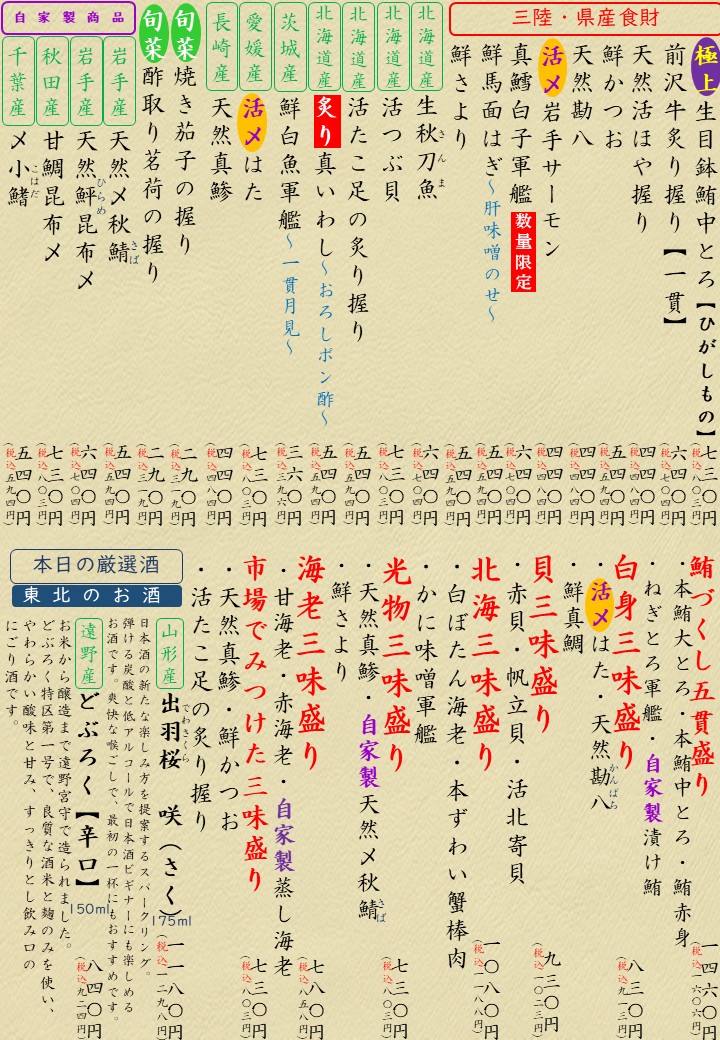 三陸・県産食財
極上生目鉢鮪中とろ【ひがしもの】 七三〇円（税込八〇三円）
前沢牛炙り握り【一貫】 六四〇円（税込七〇四円）
天然活ほや握り 四四〇円（税込四八四円）
鮮かつお 五四〇円（税込五九四円）
天然勘八 四四〇円（税込四八四円）
活〆岩手サーモン 四四〇円（税込四八四円）
真鱈白子軍艦 数量限定 六四〇円（税込七〇四円）
鮮馬面はぎ～肝味噌のせ～ 五四〇円（税込五九四円）
鮮さより 五四〇円（税込五九四円）
北海道産 生秋刀魚 さんま 六四〇円（税込七〇四円）
北海道産 活つぶ貝 七三〇円（税込八〇三円）
北海道産 活たこ足の炙り握り 五四〇円（税込五九四円）
北海道産 炙り真いわし～おろしポン酢～ 五四〇円（税込五九四円）
茨城産 鮮白魚軍艦～一貫月見～ 三六〇円（税込三九六円）
愛媛産 活〆はた 七三〇円（税込八〇三円）
長崎産 天然真鯵 四四〇円（税込四八四円）
旬菜 焼き茄子の握り 二九〇円（税込三一九円）
旬菜 酢取り茗荷の握り 二九〇円（税込三一九円）
自家製商品
岩手産 天然〆秋鯖 さば 五四〇円（税込五九四円）
岩手産 天然鮃昆布〆 ひらめ 六四〇円（税込七〇四円）
秋田産 甘鯛昆布〆 七三〇円（税込八〇三円）
千葉産 〆小鰭 こはだ 五四〇円（税込五九四円）
鮪づくし五貫盛り 一四六〇円（税込一六〇六円）
・本鮪大とろ・本鮪中とろ・鮪赤身
・ねぎとろ軍艦・自家製漬け鮪
白身三味盛り 八三〇円（税込九一三円）
・活〆はた・天然勘八 かんぱち
・鮮真鯛
貝三味盛り 九三〇円（税込一〇二三円）
・赤貝・帆立貝・活北寄貝
北海三味盛り 一〇八〇円（税込一一八八円）
・白ぼたん海老・本ずわい蟹棒肉
・かに味噌軍艦
光物三味盛り 七三〇円（税込八〇三円）
・天然真鯵・自家製天然〆秋鯖 さば
・鮮さより
海老三味盛り 七八〇円（税込八五八円）
・甘海老・赤海老・自家製蒸し海老
市場でみつけた三味盛り 七三〇円（税込八〇三円）
・天然真鯵・鮮かつお
・活たこ足の炙り握り
本日の厳選酒
東北のお酒
山形産 出羽桜 でわざくら 咲（さく） 175ml 一一八〇円（税込一二九八円）
日本酒の新たな楽しみ方を提案するスパークリング。
弾ける炭酸と低アルコールで日本酒ビギナーにも楽しめる
お酒です。爽快な喉ごしで、最初の一杯にもおすすめです。
遠野産 どぶろく【辛口】 150ml 八四〇円（税込九二四円）
お米から醸造まで遠野宮守で造られました。
どぶろく特区第一号で、良質な酒米と麹のみを使い、
やわらかい酸味と甘み、すっきりとし飲み口の
にごり酒です。